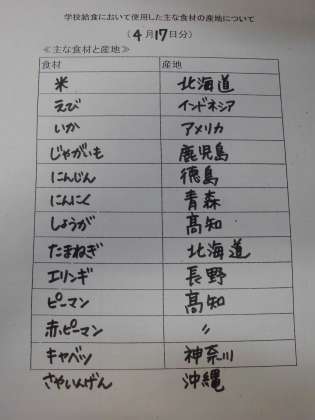 学校給食において使用した主な食材の産地について
(4月17日分)
≪主な食材と産地≫
食材 産地
米 北海道
えび インドネシア
いか アメリカ
じゃがいも 鹿児島
にんじん 徳島
にんにく 青森
しょうが 高知
たまねぎ 北海道
エリンギ 長野
ピーマン 高知
赤ピーマン 〃
キャベツ 神奈川
さやいんげん 沖縄